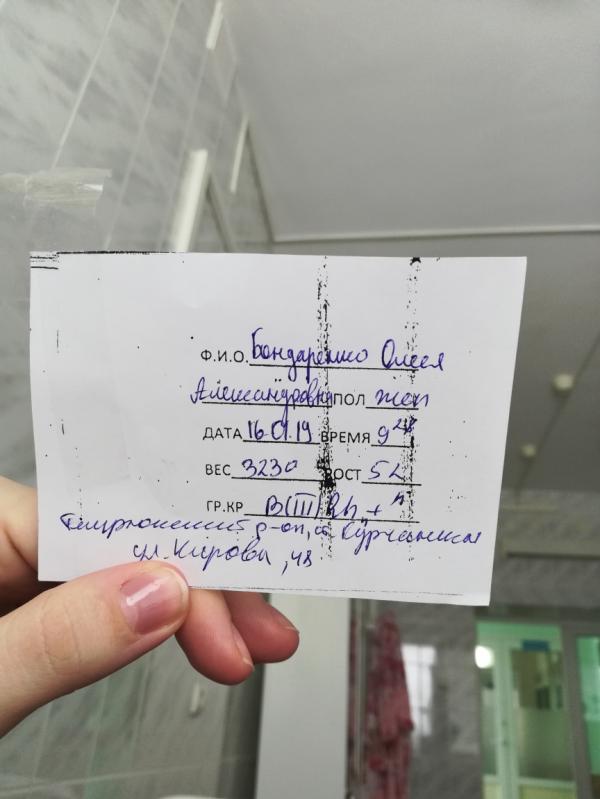 Ф.И.О. Бондаренко Олеся
Александровна ПОЛ жен
ДАТА 16.01.19 ВРЕМЯ 9
ВЕС 3230 РОСТ 52
ГР.КР B(III) Rh +
Темрюкский р-он, ст Курчанская
ул. Кирова, 48